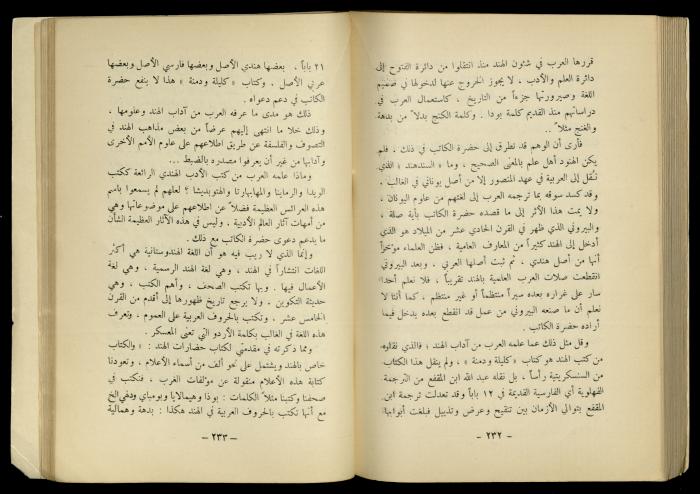 قررها العرب في شئون الهند منذ انتقلوا من دائرة الفتوح إلى
دائرة العلم والأدب ، لا يجوز الخروج عنها لدخولها في صميم
اللغة وصيرورتها جزءاً من التاريخ ، كاستعمال العرب في
دراساتهم منذ القديم كلمة بودا . وكلمة الكنج بدلاً من بدهة
والغنج مثلاً ..
فأرى أن الوهم قد تطرق إلى حضرة الكاتب في ذلك ، فلم
يكن الهنود أهل علم بالمعنى الصحيح ، وما « السندهند » الذي
نقل إلى العربية في عهد المنصور إلا من أصل يوناني في الغالب .
وقد كسد سوقه بما ترجمه العرب إلى لغتهم من علوم اليونان ،
ولا يمت هذا الأثر إلى ما قصده حضرة الكاتب بأية صلة ،
والبيروني الذي ظهر في القرن الحادي عشر من الميلاد هو الذي
أدخل إلى الهند كثيراً من المعارف العامية ، فظن العلماء مؤخراً
أنها من أصل هندي ، ثم ثبت أصلها العربي . وبعد البيروني
انقطعت صلات العرب العلمية بالهند تقريباً ، فلا نعلم أحداً
سار على غراره بعده سيراً منتظماً أو غير منتظم ، كما أننا لا
نعلم أن ما صنعه البيروني من عمل قد انقطع بعده بدخل فيما
أراده حضرة الكاتب .
وقل مثل ذلك عما علمه العرب من آداب الهند ؛ فالذي نقلوه
من كتب الهند هو كتاب « كليلة ودمنة » ، ولم ينقل هذا الكتاب
من السنسكريتية رأساً ، بل نقله عبد الله ابن المقفع من الترجمة
الفهلوية أي الفارسية القديمة في ١٢ باباً وقد تعدلت ترجمة ابن
المقفع بتوالي الأزمان بين تنقيح وعرض وتذييل فبلغت أبوابها
— ٢٣٢ —
٢١ باباً ، بعضها هندي الأصل وبعضها فارسي الأصل وبعضها
عربي الأصل . وكتاب « كليلة ودمنة » هذا لا ينفع حضرة
الكاتب في دعم دعواه .
ذلك هو مدى ما عرفه العرب من آداب الهند وعلومها ،
وذلك خلا ما انتهى إليهم عرضاً من بعض مذاهب الهند في
التصوف والفلسفة عن طريق اطلاعهم على علوم الأمم الأخرى
وآدابها من غير أن يعرفوا مصدره بالضبط ...
وماذا علمه العرب من كتب الأدب الهندي الرائعة ككتب
الريدا والرماينا والمهابهارتا والهتوبديشا ؟ لعلهم لم يسمعوا باسم
هذه العرائس العظيمة فضلاً عن اطلاعهم على موضوعاتها وهي
من أمهات آثار العالم الأدبية . وليس في هذه الآثار العظيمة الشأن
ما يدعم دعوى حضرة الكاتب مع ذلك .
وإنما الذي لا ريب فيه هو أن اللغة الهندوستانية هي أكثر
اللغات انتشاراً في الهند ، وهي لغة الهند الرسمية ، وهي لغة
الأعمال فيها . وبها تكتب الصحف ، وأهم الكتب ، وهي
حديثة التكوين ، ولا يرجع تاريخ ظهورها إلى أقدم من القرن
الخامس عشر ، وتكتب بالحروف العربية على العموم ، وتعرف
هذه اللغة في الغالب بكلمة الأردو التي تعنى المعسكر .
ومما ذكرته في مقدمتي لكتاب حضارات الهند : « والكتاب
خاص بالهند ويشتمل على نحو ألف من أسماء الأعلام ، وتعودنا
كتابة هذه الأعلام منقولة عن مؤلفات الغرب ، فنكتب في
صحفنا وكتبنا مثلاً الكلمات : بوذا وهيمالايا وبومباي ودهي الخ
مع أنها تكتب بالحروف العربية في الهند هكذا : بدهة وهمالية
— ٢٣٣ —